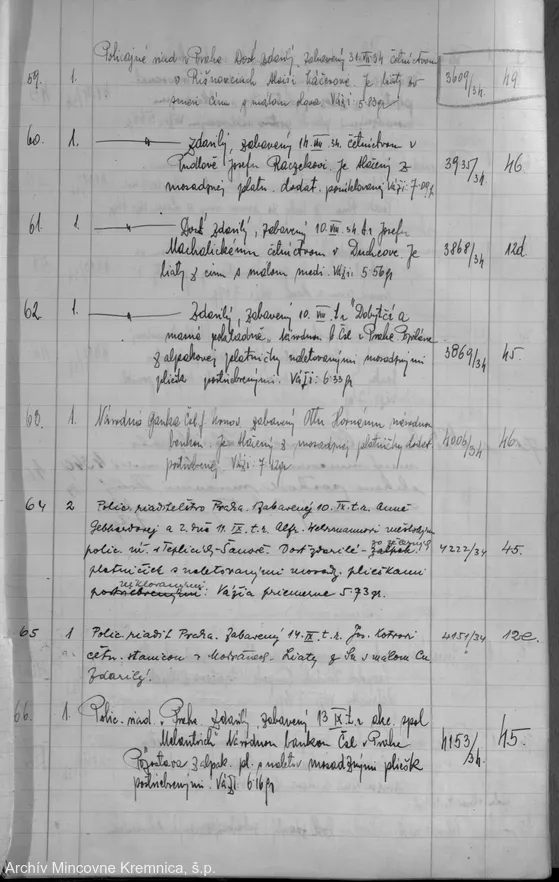 59. 1. Policajné riad. v Praha Dosť zdarilý, zabavený 31.VII.34 četníctvom
v Rišňovciach Alojzi Káčerove. Je liaty zo
smesi cínu s málom Váži 5.03gr 3609/34. 49
60. 1. —〃— zdarilý, zabavený 14.VII.34. četníctvom v
Josefu Raczekovi. Je tlačený z
mosadznej platn. dodat. poniklovaný Váži: 7.09g 3935/34. 46.
61. 1. —〃— Dosť zdarilý, zabavený 10.VIII.34 t.r. Josefu
Machalickému četníctvom v Duchcove. Je
liaty z cínu s málom medi. Váži: 5.56gr 3868/34 12d.
62 1. —〃— Zdarilý, zabavený 10.VIII. t.r. "Dobytčí a
masné pokladně" Národnou b. Čsl. v Praha
z alpakovej platničky naletovanými mosadznými
pliešk postriebrenými. Váži: 6.33gr 3869/34 45.
63. 1. Národná banka Čsl. zabavený Otto národnou
bankou. Je tlačený z mosadznej platničky dodat
postriebrený. Váži: 7.42gr 4006/34 46.
64 2 Polic. riaditeľstvo Praha. Zabavený 10.IX.t.a. Anne
Gebhardovej a 2. dňa 11.IX.t.r. Alfr.
polic. v Teplice-Šanově. Dosť zdarilé - zalpak.
platničiek s naletovanými mosadz. plieškami
postriebrenými: Vážia priemerne 5.73gr. 4222/34 45.
65 1 Polic. riadit Praha. Zabavený 14.IX.t.r. Jos. Kotrovi
četn. stanicou v Liaty z Sn s málom Cu.
Zdarilý. 4151/34 12e.
66. 1. Polic. riad. v Praha. Zdarilý zabavený 13.IX.t.r akc. spol
Melantrich Národnou bankou Čsl v Prahe
Pozostáva z alpak. pl. s naletov mosadznými pliešk
postriebrenými. Váži: 6.16gr 4153/34. 45.
Archív Mincovne Kremnica, š.p.